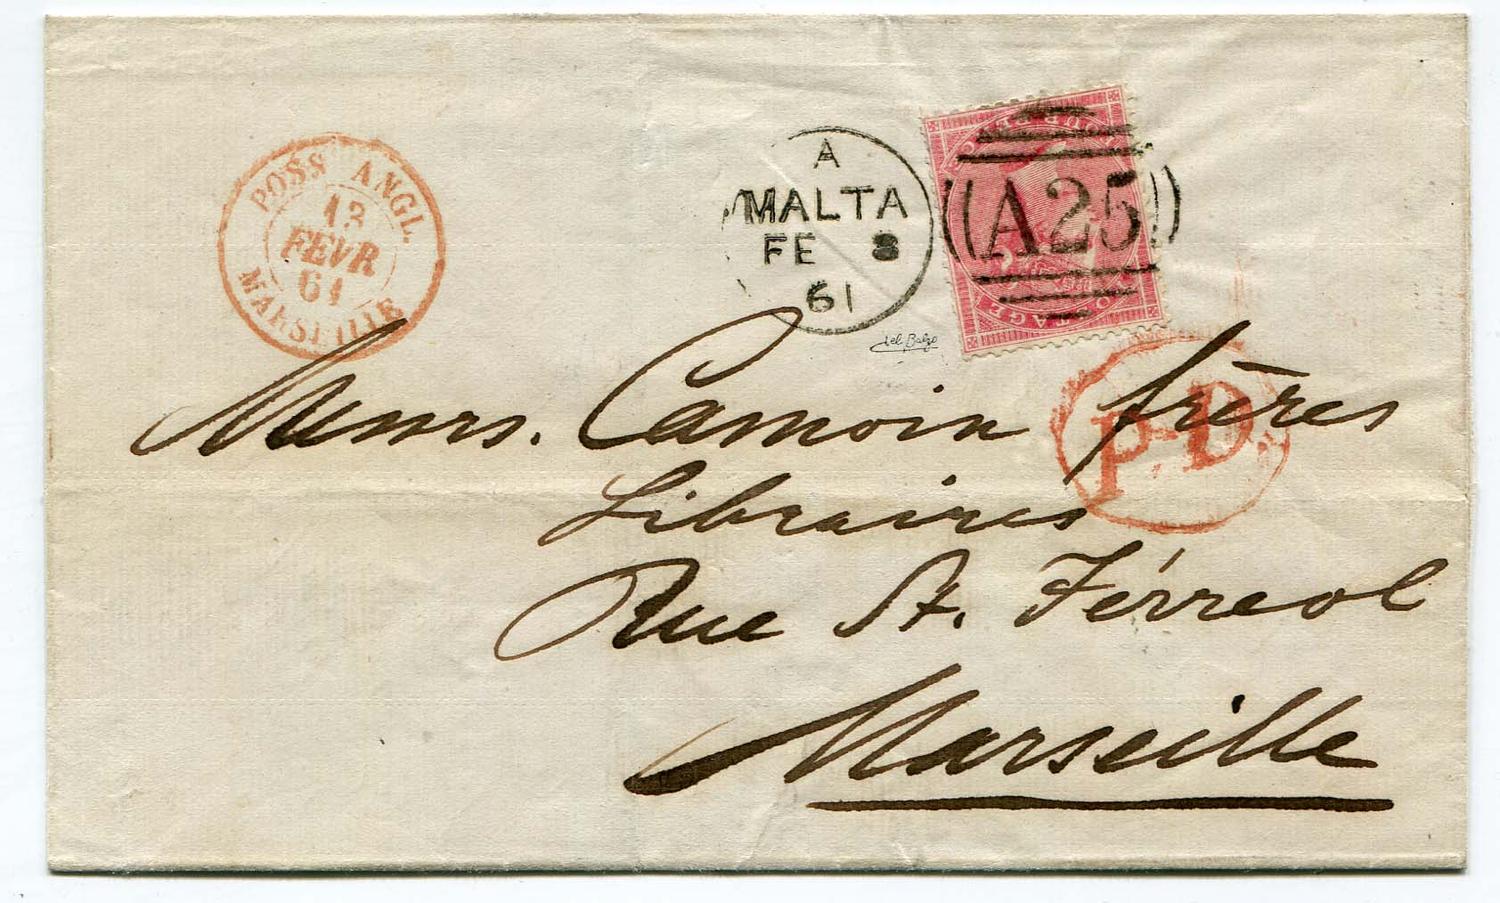 POSS ANGL.
13
FEVR
61
MARSEILLE
A
MALTA
FE 8
61
A25
POSTAGE
del Balzo
P.D.
Messrs. Camoin frères
Libraires
Rue St. Férreol
Marseille